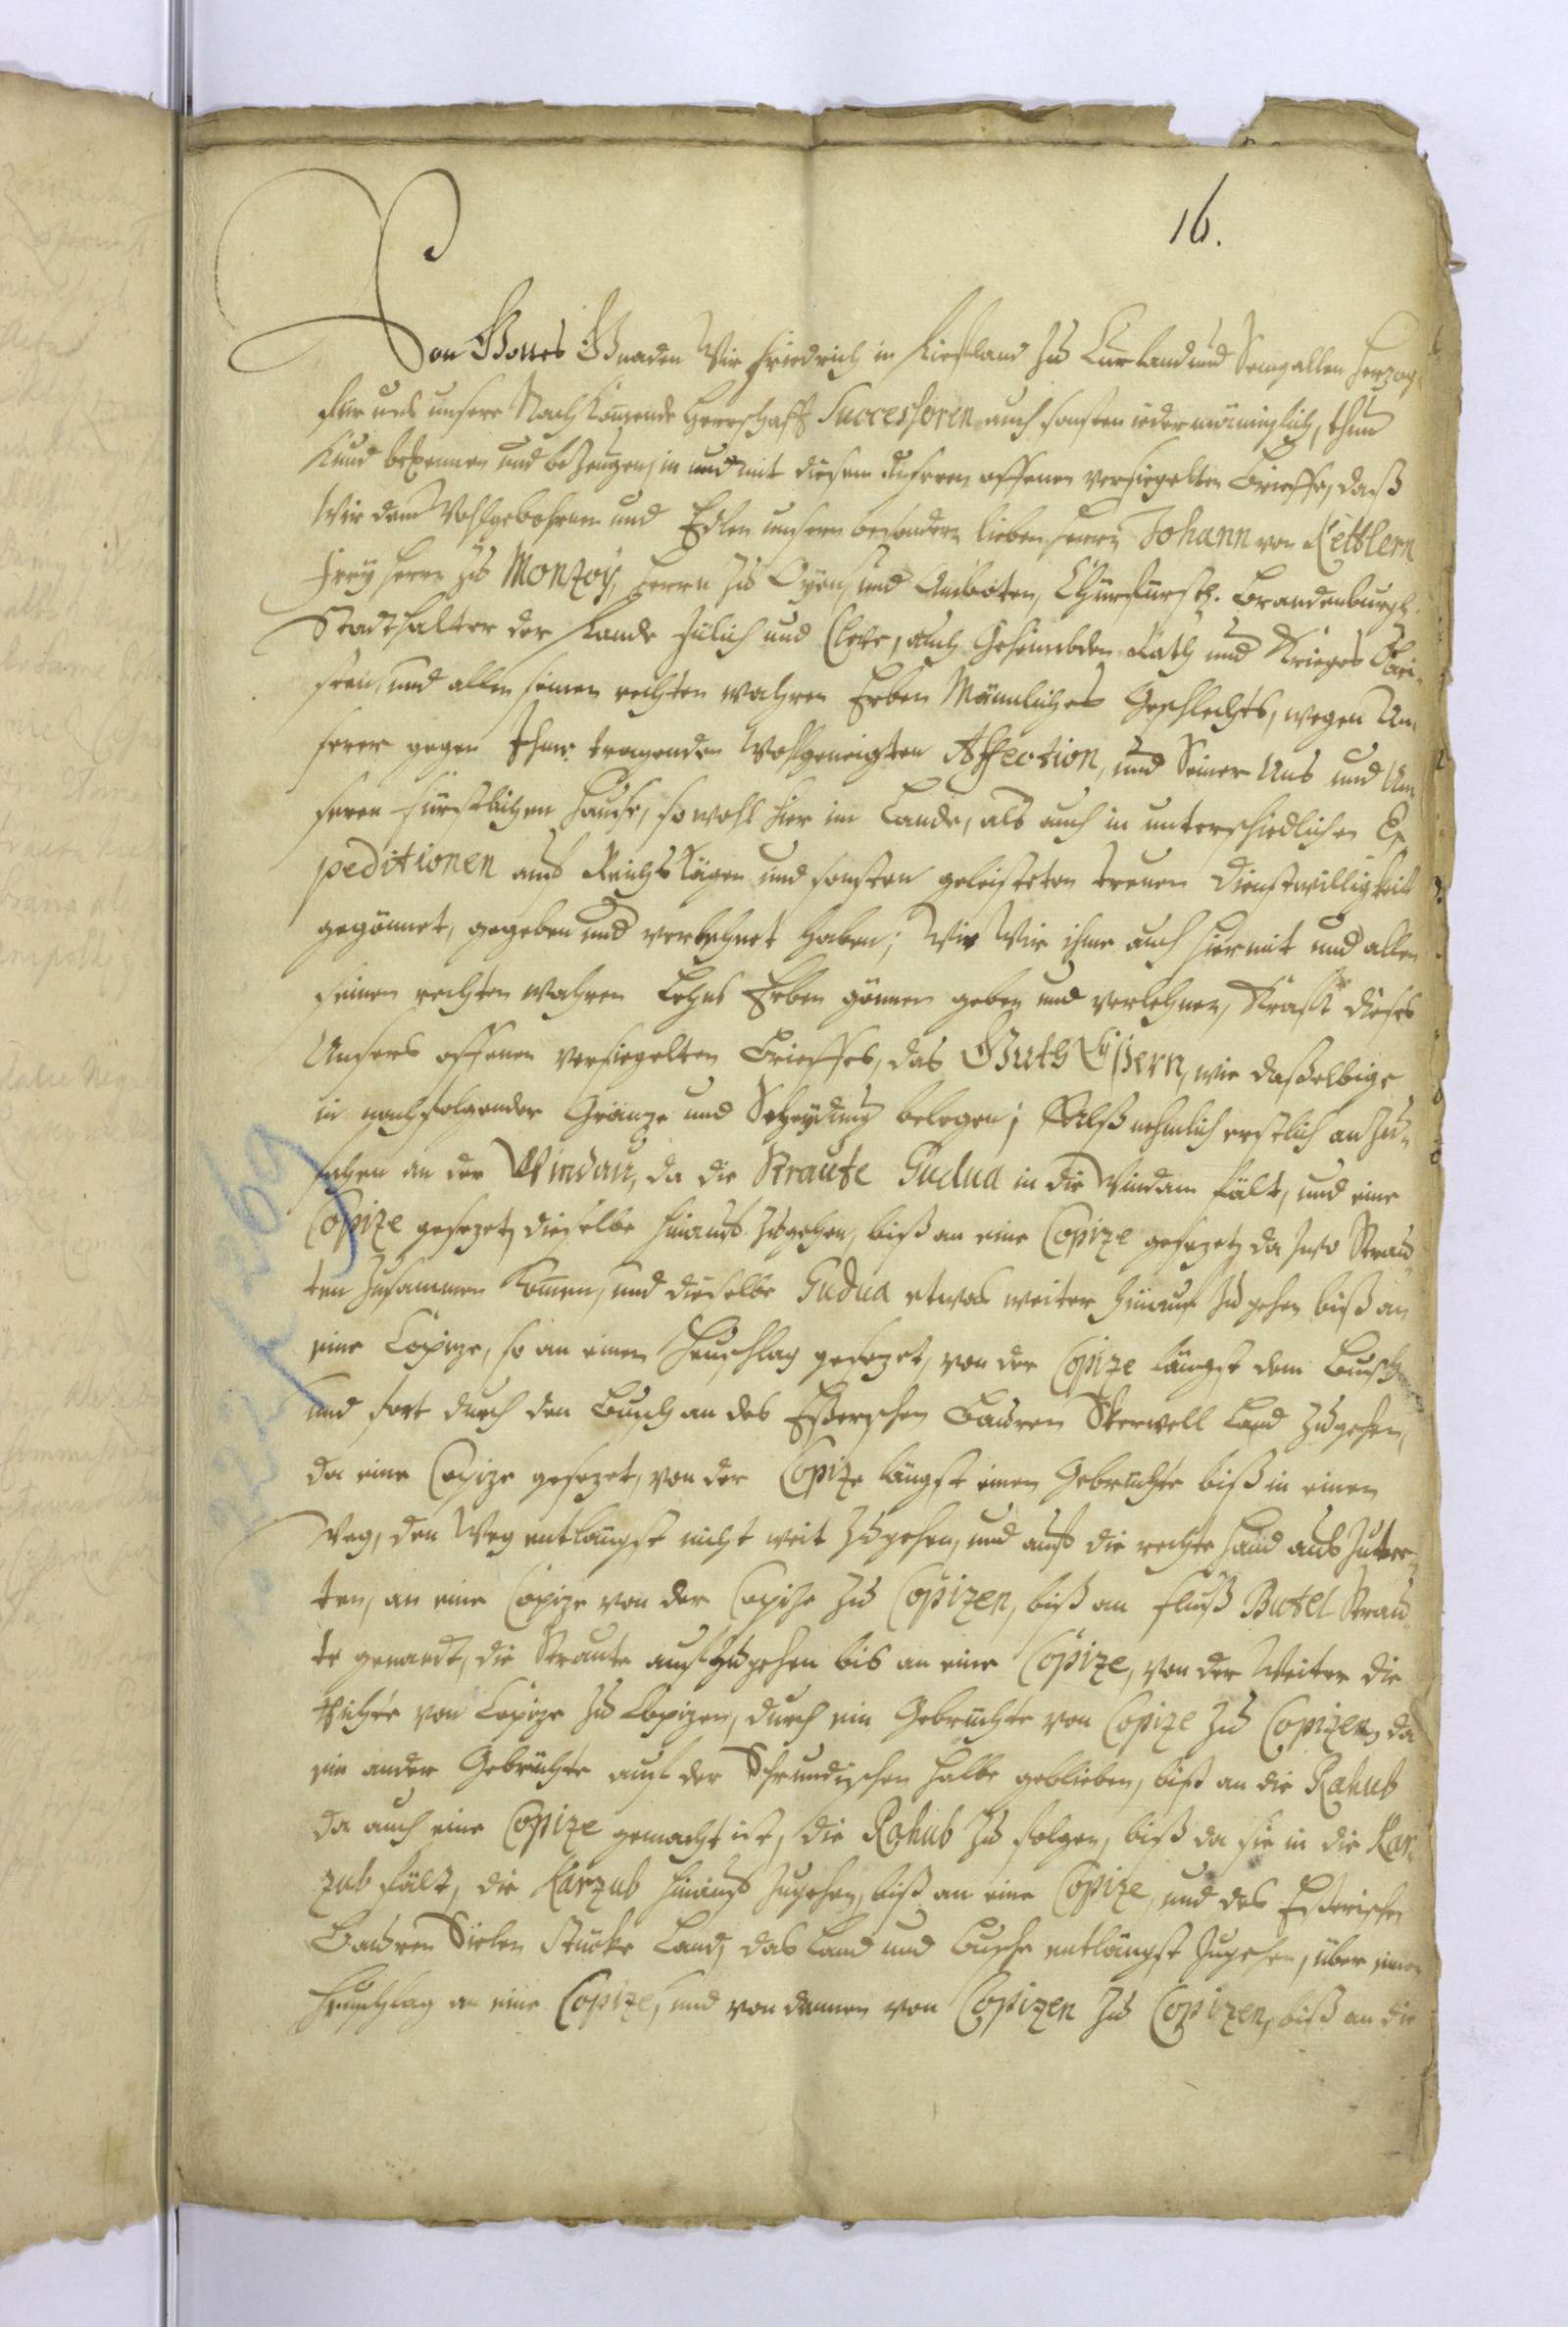 16.
Von Gottes Gnaden Wir Friedrich in Liefland zu Curland und Semgallen Herzog
für uns unsere Nachkommende Herrschafft Successoren auch sonsten iedermänniglich, thun
kund bekennen und bezeugen, in und mit diesem unseren offenen versiegelten Brieffe, daß
Wir dem Wohlgebohrnen und Edlen unsern besondern lieben Herrn Johann von Kettlern
Frey Herrn zu Monzoy, Herrn zu Oyen, und Amboten, Churfürstl. Brandenburgl.
Stadthalter der Lande Jülich und Cleve, auch Geheimbden Rath und Krieges Obri-
sten, und allen seinen rechten wahren Erben Männliches Geschlechts, wegen Un-
serer gegen Ihme tragenden wohlgeneigten Affection, und Seiner Uns und Un-
seren Fürstlichen Hause, so wohl hier im Lande, als auch in unterschiedlichen Ex-
peditionen auf Reichs Tägen und sonsten geleisteten treuen Dienstwilligkeit
gegönnet, gegeben und verlehnet haben; Wie Wir ihme auch hiermit und allen
seinen rechten wahren Lehns Erben gönnen geben und verlehnen, Krafft dieses
Unsers offenen versiegelten Brieffes, das Guth Eßern, wie daßelbige
in nachfolgender Gränze und Scheydung belegen; Alß nehmlich erstlich anzu-
fahen an der Windau, da die Straute Gudua in die Windau fält, und eine
Copize gesezet, dieselbe hinauf zugehen, biß an eine Copize gesezet, da zwo Strau-
ten zusammen komen, und dieselbe Gudua etwas weiter hinauf zu gehen biß an
eine Copize, so an einen Heuschlag gesezet, von der Copize längst dem Busch
und fort durch den Busch an des Eßerschen Bauren Skerwell Land zugehen,
da eine Copize gesezet, von der Copize längst einen Gebrüchte biß in einen
Weg, den Weg entlängst nicht weit zugehen, und auf die rechte Hand aus zutre-
ten, an eine Copize von der Copize zu Copizen, biß an Fluß Butel Strau-
te genandt, die Straute auf zugehen bis an eine Copize, von der Weiter die
Richte von Copize zu Copizen, durch ein Gebrüchte von Copize zu Copizen, da
ein ander Gebrüchte auf der Schrundischen Halbe geblieben, biß an die Rahub
da auch eine Copize gemacht ist, die Rohub zu folgen, biß da sie in die Kar-
zub fält, die Karzub hinauf zugehen, biß an eine Copize, und des Eßerischen
Bauren Sielen Stücke Land, das Land und Busche entlängst zugehen, über einen
Heuschlag an eine Copize, und von dannen von Copizen zu Copizen, biß an die